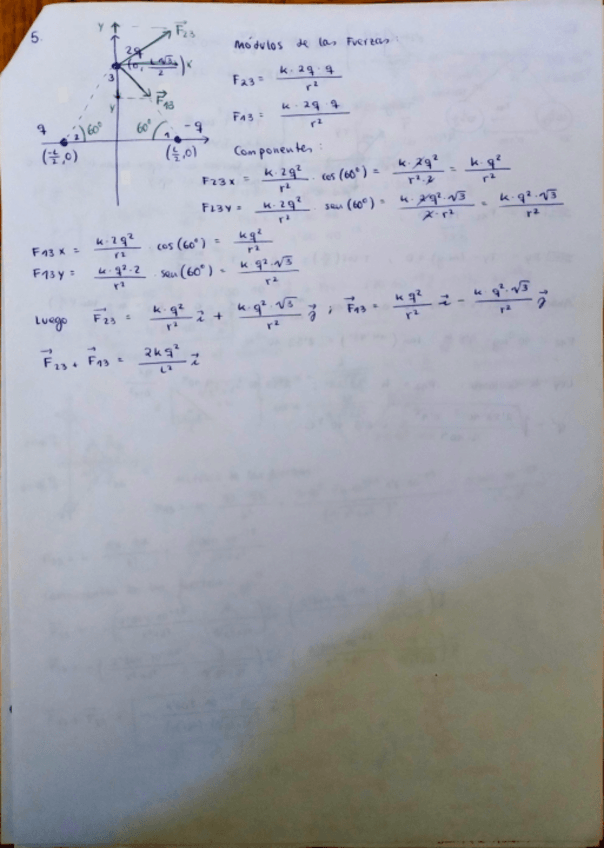 5.
y
F⃗23
2q
(0, L·√3/2) x
3
y
F⃗13
q
2 60°
60° 1
-q
(-L/2, 0)
(L/2, 0)
Módulos de las Fuerzas:
F23 = k·2q·q / r²
F13 = k·2q·q / r²
Componentes:
F23x = k·2q²/r² · cos(60°) = k·2q²/r²·2 = k·q²/r²
F23y = k·2q²/r² · sen(60°) = k·2q²·√3/2·r² = k·q²·√3/r²
F13x = k·2q²/r² · cos(60°) = kq²/r²
F13y = k·q²·2/r² · sen(60°) = k·q²·√3/r²
Luego F⃗23 = k·q²/r² i⃗ + k·q²·√3/r² j⃗ ; F⃗13 = kq²/r² i⃗ - k·q²·√3/r² j⃗
F⃗23 + F⃗13 = 2kq²/L² i⃗